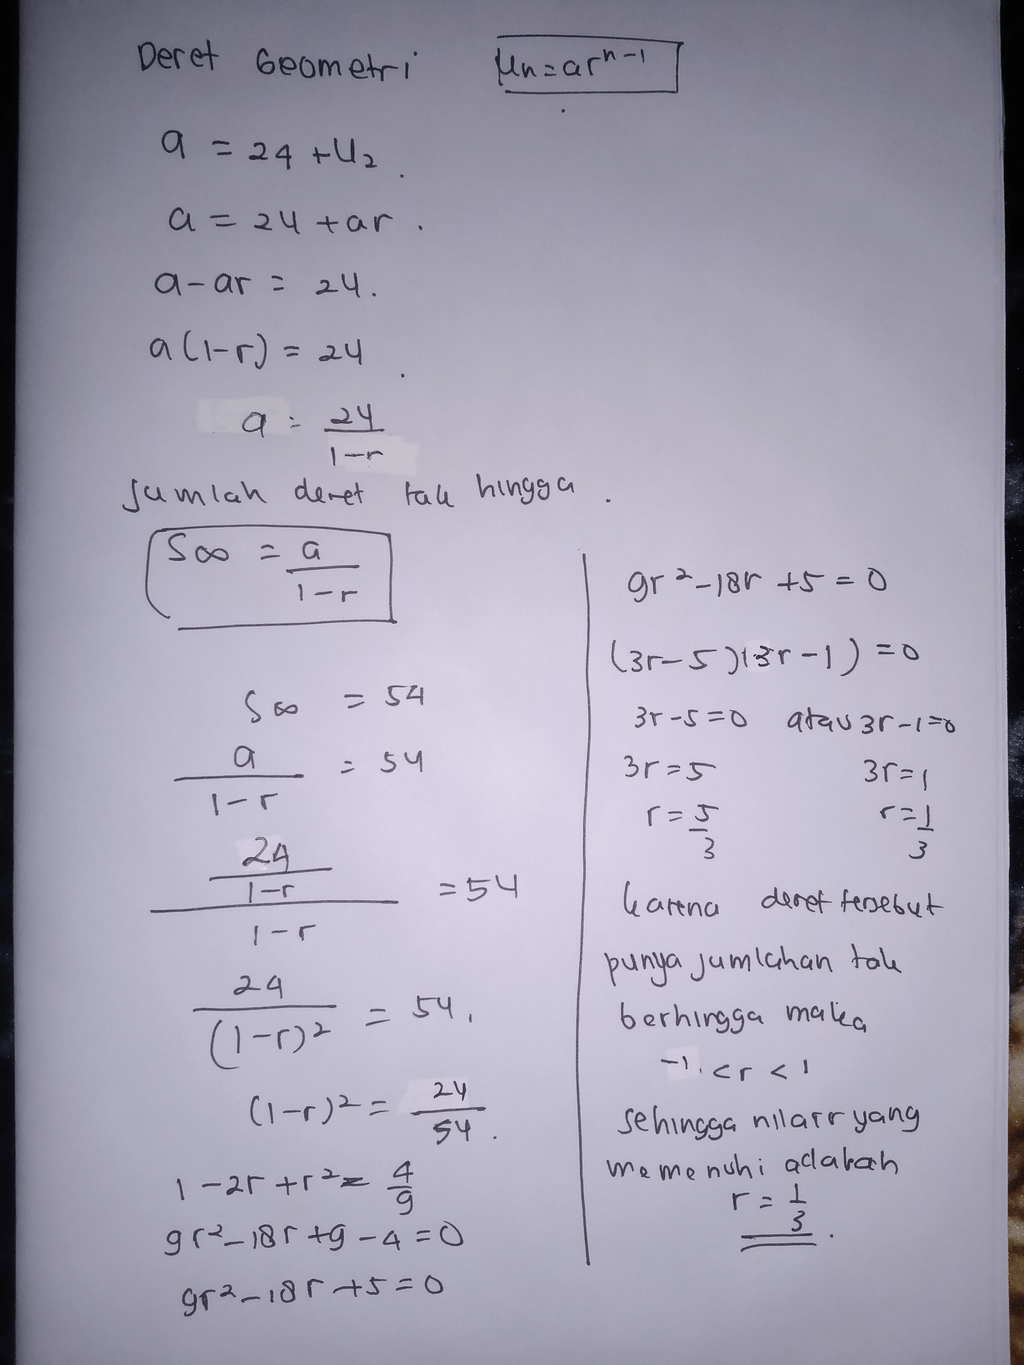 Deret Geometri Un=ar^n-1
a = 24 + U₂
a = 24 + ar
a - ar = 24.
a(1-r) = 24
a = 24/1-r
Jumlah deret tak hingga
S∞ = a/1-r
S∞ = 54
a/1-r = 54
24/1-r / 1-r = 54
24/(1-r)² = 54
(1-r)² = 24/54
1-2r+r² = 4/9
9r²-18r+9-4=0
9r²-18r+5=0
9r²-18r+5=0
(3r-5)(3r-1)=0
3r-5=0 atau 3r-1=0
3r=5 3r=1
r=5/3 r=1/3
karena deret tersebut
punya jumlahan tak
berhingga maka
-1<r<1
sehingga nilai r yang
memenuhi adalah
r = 1/3